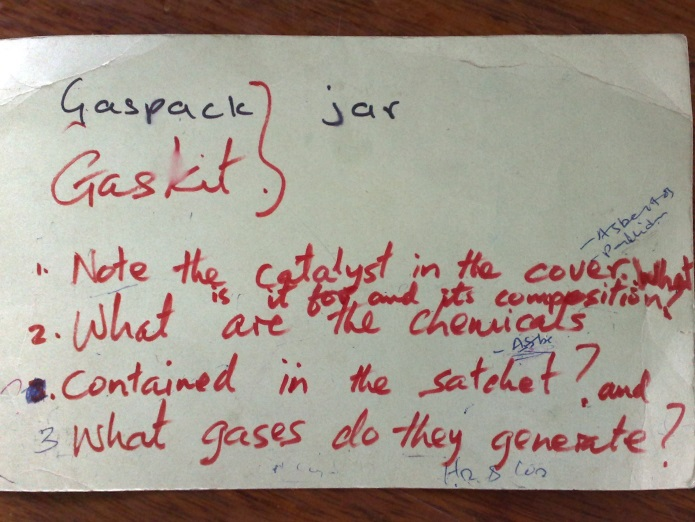 Gaspack } jar
Gaskit.
- Asbestos
1. Note the catalyst in the cover. What
is it for and its composition?
2. What are the chemicals
contained in the satchet? and
3. What gases do they generate?
H2 & CO2